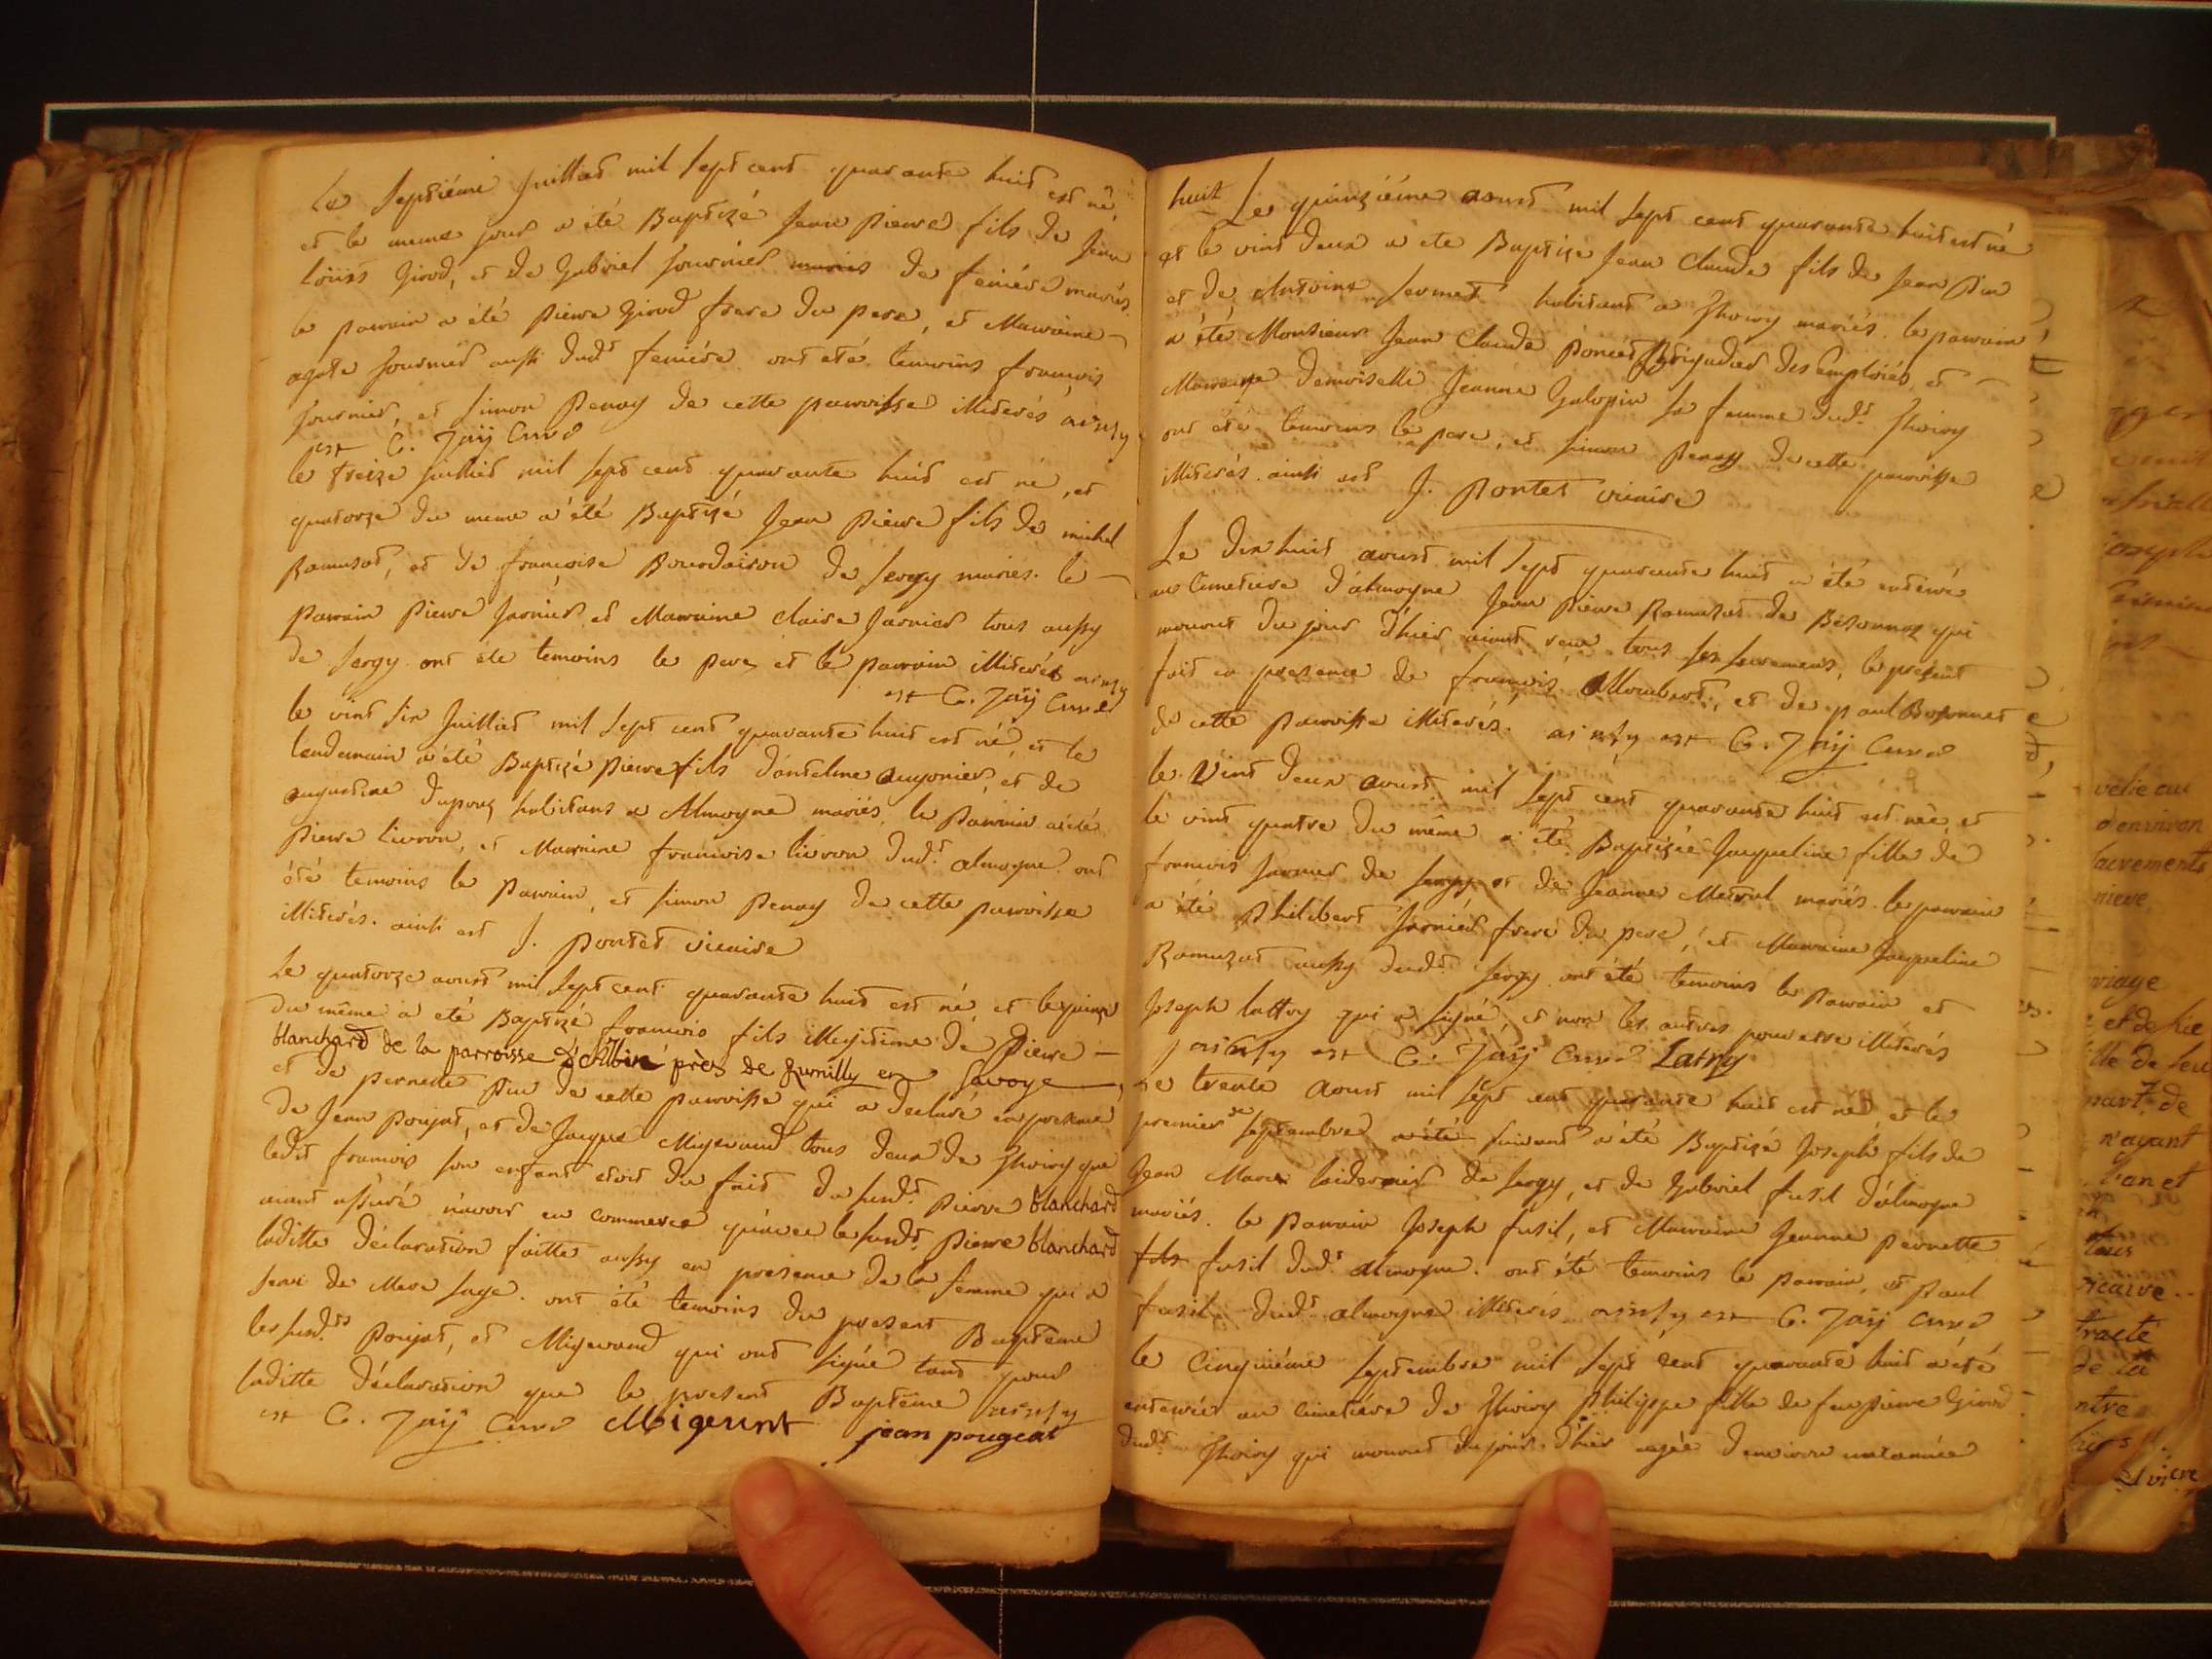 Le septiéme Juillet mil sept cent quarante huit est né,
et le meme jour a été Baptizé Jean Pierre fils de Jean
Loüis Girod, et de Gabriel fournier maries de feniére mariés.
le parrain a été Pierre Girod frere du pere, et Marraine
agate fournier aussi dudt feniére. ont été temoins francois
fournier, et simon Penay de cette parroisse illiterés ainsy
est C. Jaÿ Curé
le treize juillet mil sept cent quarante huit est né, et
quatorze du meme a été Baptizé Jean Pierre fils de michel
Ramuzat, et de francoise Bourdairon de sergy mariés. le
parrain Pierre Jarnier et Marraine claire Jarnier tous aussy
de sergy. ont été temoins le pere, et le parrain illiterés ainsy
est C. Jaÿ Curé
le vint six Juillet mil sept cent quarante huit est né, et le
lendemain a été Baptizé Pierre fils d'antelme augonier, et de
augustine dupouz habitans a Almogne mariés. le Parrain a été
Pierre Livron, et Marraine francoise livron dudt almogne. ont
été temoins le Parrain, et simon Penay de cette parroisse
illiterés. ainsi est J. Pontet vicaire
Le quatorze aoust mil sept cent quarante huit est né, et le quinze
du même a été Baptizé francois fils illegitime de Pierre
blanchard de la parroisse d'Albin près de Rumilly en Savoye
et de pernette Piu de cette parroisse qui a declaré en presence
de Jean Poujat, et de Jacque Migerand tous deux de Thoiry que
ledit francois son enfant etoit du fait du susdt Pierre blanchard
aiant assuré n'avoir eu commerce qu'avec le susdt Pierre blanchard
laditte déclaration faitte aussy en presence de la femme qui a
servi de Mere sage. ont été temoins du present Baptême
les susdts Poujat, et Migerand qui ont signé tant pour
laditte déclaration que le present Baptême ainsy
est C. Jaÿ Curé Migerint jean pougeat
huit Le quinziéme aoust mil sept cent quarante huit est né
et le vint deux a ete Baptize Jean Claude fils de Jean Piu
et de Antoine serment habitant a Thoiry mariés. le parrain
a été Monsieur Jean Claude Poncet Brigadier des Emploiés, et
Marraine demoiselle Jeanne Galopin sa femme dudt Thoiry
ont été temoins le pere, et simon Penay de cette parroisse
illiterés. ainsi est J. Pontet vicaire
Le dix huit aoust mil sept quarante huit a été enterré
au Cimetiere d'almogne Jean Pierre Ramuzat de Bésonnaz qui
mourut du jour d'hier aiant receu tous ses sacremens, le present
fait en presence de francois Allombert, et de paul Bosonnet
de cette Parroisse illiterés. ainsy est C. Jaÿ Curé
le Vint deux aoust mil sept cent quarante huit est née, et
le vint quatre du même a été Baptizée Jaqueline fille de
francois Jarnier de sergy, et de Jeanne Metral mariés. le parrain
a été Philibert Jarnier frere du pere, et Marraine Jaqueline
Ramuzat aussy dudt sergy. ont été temoins le Parrain et
Joseph lattry qui a signé, et non les autres pour etre illiterés
ainsy est C. Jaÿ Curé Latry
Le trente Aoust mil sept cent quarante huit est né et le
premier de septembre a été suivant a été Baptizé Joseph fils de
Jean Marie laidernier de sergy, et de Gabriel fusil d'almogne
mariés. le Parrain Joseph fusil, et Marraine Jeanne Pernette
fils fusil dudt almogne. ont été temoins le parrain, et Paul
fusil dudt almogne illiterés ainsy est C. Jaÿ Curé
le Cinquiéme septembre mil sept cent quarante huit a été
enterrée au Cimetiere de Thoiry Philippe fille de feu pierre Girod
dudt Thoiry qui mourut du jour d'hier agée d'environ une année
velie au
d'environ
sacrements
nieve
mariage
et de
fille de feu
part de
n'ayant
vicaire
traité
de la